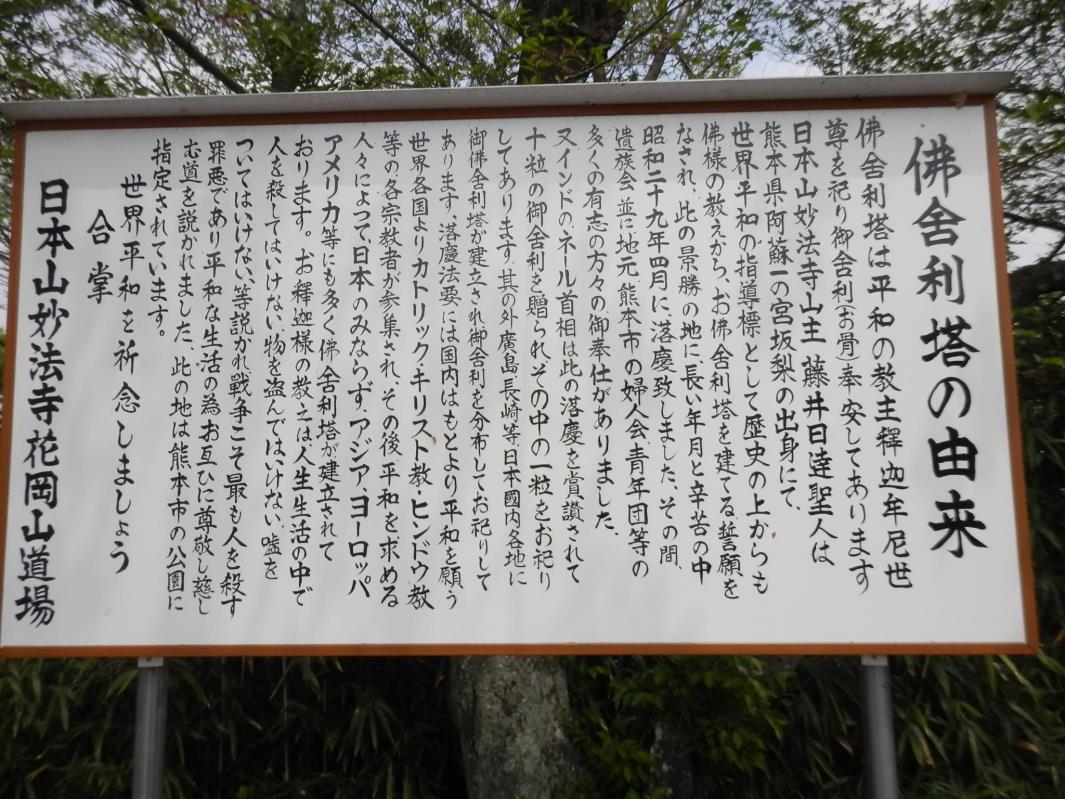 佛舎利塔の由来
佛舎利塔は平和の教主釋迦牟尼世
尊を祀り御舎利(お骨)奉安してあります
日本山妙法寺山主 藤井日達聖人は
熊本県阿蘇一の宮坂梨の出身にて、
世界平和の指導標として歴史の上からも
佛様の教えから、お佛舎利塔を建てる誓願を
なされ、此の景勝の地に長い年月と辛苦の中
昭和二十九年四月に、落慶致しました、その間、
遺族会、並に、地元熊本市の婦人会、青年団等の
多くの有志の方々の御奉仕がありました、
又インドのネール首相は此の落慶を賞讃されて
十粒の御舎利を贈られ、その中の一粒をお祀り
してあります、其の外廣島、長崎等日本國内各地に
御佛舎利塔が建立され御舎利を分布してお祀りして
あります、落慶法要には国内はもとより平和を願う
世界各国よりカトリック・キリスト教・ヒンドウ教
等の、各宗教者が参集され、その後、平和を求める
人々によって、日本のみならず、アジア、ヨーロッパ
アメリカ等にも多く佛舎利塔が建立されて
おります。お釋迦様の教えは人生生活の中で
人を殺してはいけない、物を盗んではいけない、嘘を
ついてはいけない、等説かれ戦争こそ最も人を殺す
罪悪であり平和な生活の為お互ひに尊敬し慈し
む道を説かれました、此の地は熊本市の公園に
指定されています。
世界平和を祈念しましょう
合掌
日本山妙法寺花岡山道場